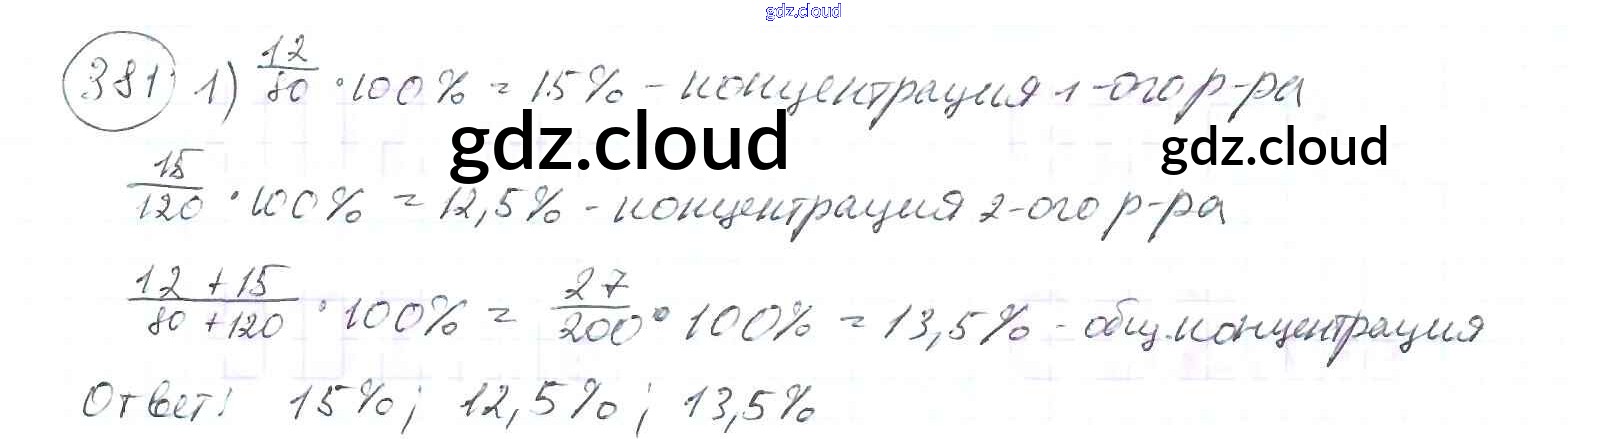 gdz.cloud
381 1) 12/80 · 100% = 15% - концентрация 1-ого р-ра
gdz.cloud gdz.cloud
15/120 · 100% = 12,5% - концентрация 2-ого р-ра
12 + 15/80 + 120 · 100% = 27/200 · 100% = 13,5% - общ. концентрация
Ответ: 15%; 12,5%; 13,5%